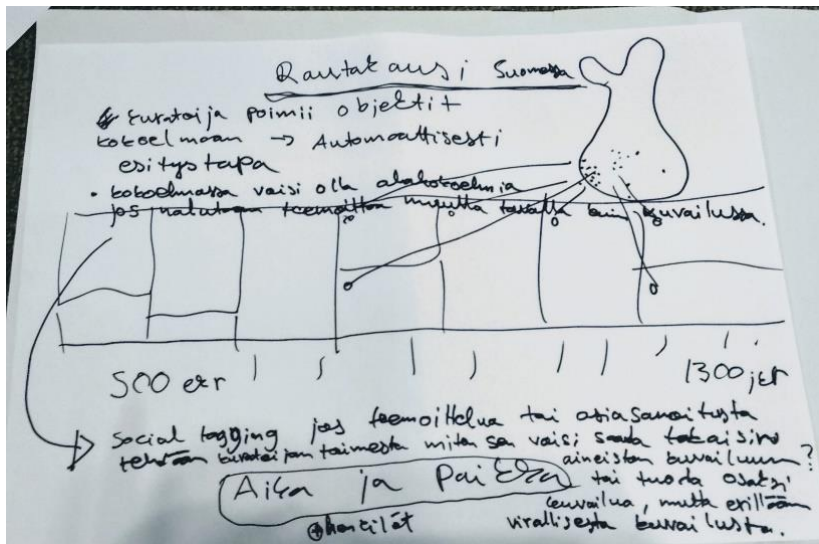 Rautakausi Suomessa
kuratoija poimii objektit
kokoelmaan → Automaattisesti
esitystapa
• kokoelmassa vaisi olla alakokoelmia
jos halutaan teemoittaa muulla tavalla kuin kuvailussa.
500 ekr
1300 jkr
Social tagging jos teemoittelua tai asiasanoitusta
tehdään kuratoijan toimesta miten sen vaisi saada takaisin
aineiston kuvailuun?
Aika ja Paikka
tai tuoda osaksi
kuvailua, mutta erillään
virallisesta kuvailusta.
+ henkilöt